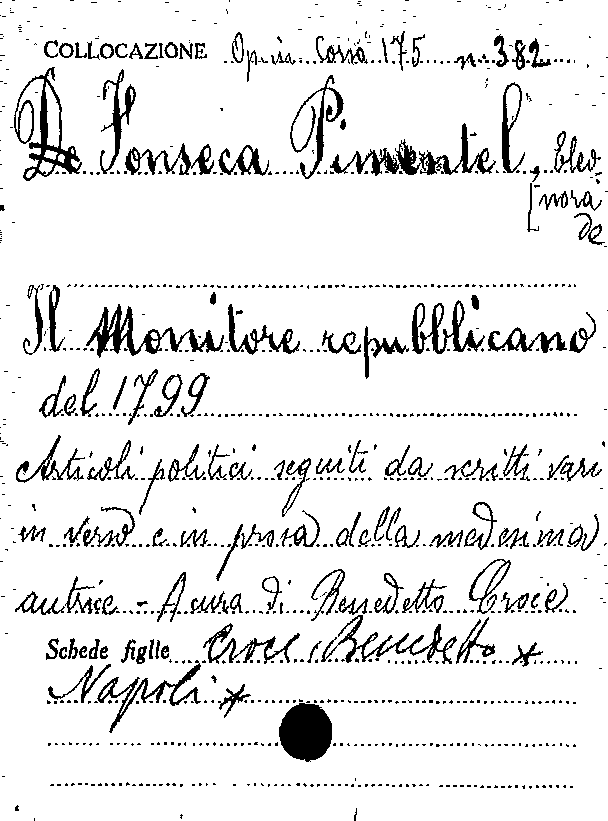 COLLOCAZIONE Corsa 175 n. 382
De Fonseca Pimentel, Eleo
[nora
De
Il Monitore repubblicano
del 1799
Articoli politici seguiti da scritti vari
in verso e in prosa della medesima
autrice - A cura di Benedetto Croce
Schede figlie Croce, Benedetto *
Napoli *